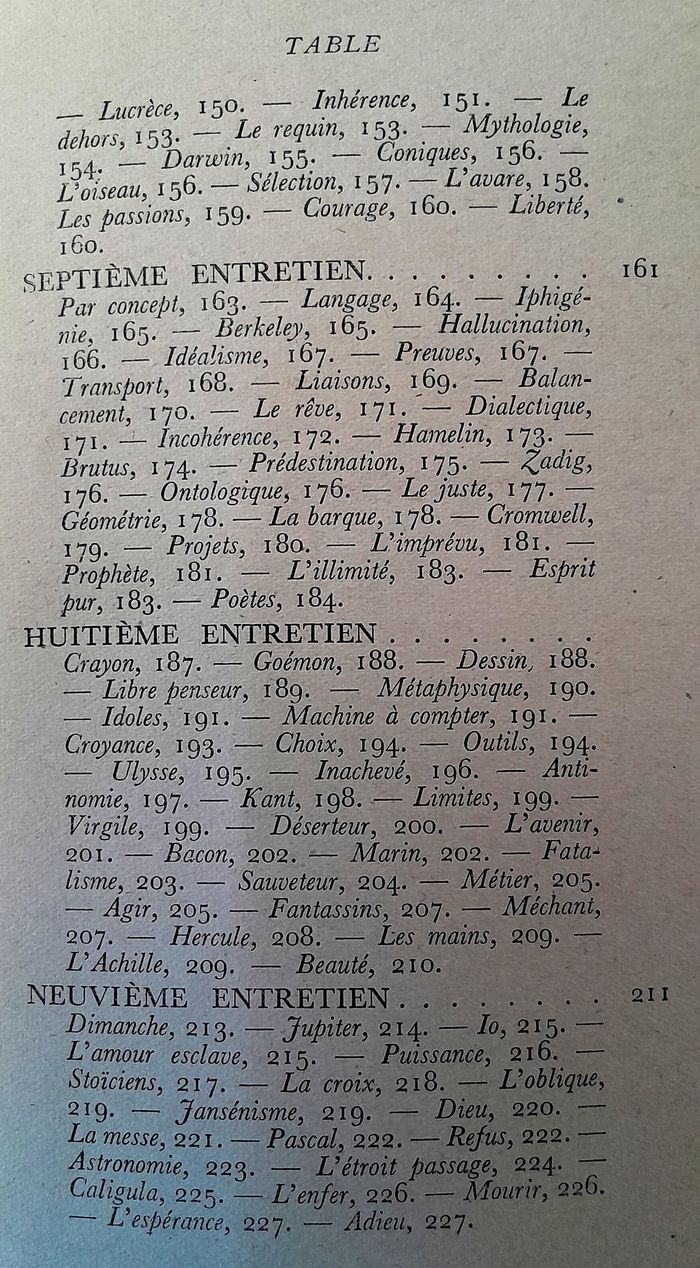 TABLE
— Lucrèce, 150. — Inhérence, 151. — Le
dehors, 153. — Le requin, 153. — Mythologie,
154. — Darwin, 155. — Coniques, 156. —
L'oiseau, 156. — Sélection, 157. — L'avare, 158.
Les passions, 159. — Courage, 160. — Liberté,
160.
SEPTIÈME ENTRETIEN. . . . . . . . . 161
Par concept, 163. — Langage, 164. — Iphigé-
nie, 165. — Berkeley, 165. — Hallucination,
166. — Idéalisme, 167. — Preuves, 167. —
Transport, 168. — Liaisons, 169. — Balan-
cement, 170. — Le rêve, 171. — Dialectique,
171. — Incohérence, 172. — Hamelin, 173. —
Brutus, 174. — Prédestination, 175. — Zadig,
176. — Ontologique, 176. — Le juste, 177. —
Géométrie, 178. — La barque, 178. — Cromwell,
179. — Projets, 180. — L'imprévu, 181. —
Prophète, 181. — L'illimité, 183. — Esprit
pur, 183. — Poètes, 184.
HUITIÈME ENTRETIEN . . . . . . . .
Crayon, 187. — Goémon, 188. — Dessin, 188.
— Libre penseur, 189. — Métaphysique, 190.
— Idoles, 191. — Machine à compter, 191. —
Croyance, 193. — Choix, 194. — Outils, 194.
— Ulysse, 195. — Inachevé, 196. — Anti-
nomie, 197. — Kant, 198. — Limites, 199. —
Virgile, 199. — Déserteur, 200. — L'avenir,
201. — Bacon, 202. — Marin, 202. — Fata-
lisme, 203. — Sauveteur, 204. — Métier, 205.
— Agir, 205. — Fantassins, 207. — Méchant,
207. — Hercule, 208. — Les mains, 209. —
L'Achille, 209. — Beauté, 210.
NEUVIÈME ENTRETIEN . . . . . . . . 211
Dimanche, 213. — Jupiter, 214. — Io, 215. —
L'amour esclave, 215. — Puissance, 216. —
Stoïciens, 217. — La croix, 218. — L'oblique,
219. — Jansénisme, 219. — Dieu, 220. —
La messe, 221. — Pascal, 222. — Refus, 222. —
Astronomie, 223. — L'étroit passage, 224. —
Caligula, 225. — L'enfer, 226. — Mourir, 226.
— L'espérance, 227. — Adieu, 227.